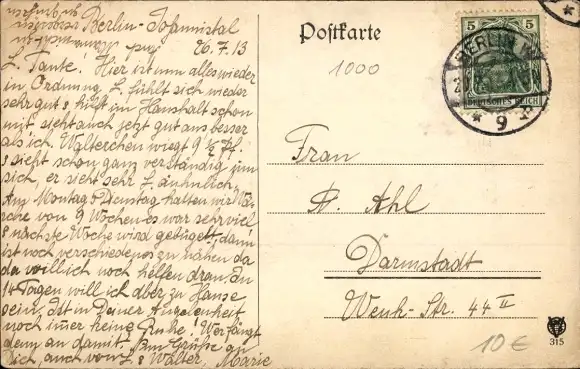 Berlin-Johannistal
20.7.13
L. Tante! Hier ist nun alles wieder
in Ordnung, L. fühlt sich wieder
sehr gut & hilft im Haushalt schon
mit, sieht auch jetzt gut aus besser
als ich. Walterchen wiegt 9 ½ Pf.
& sieht schon ganz verständig um
sich, er sieht sehr L. ähnlich.
Am Montag & Dienstag halten wir Wä-
sche von 9 Wochen es war sehr viel
& nächste Woche wird gebügelt, dann
ist noch verschiedenes zu nähen da
da will ich noch helfen dran, in
14 Tagen will ich aber zu Hause
sein. Ist in Deiner Angelegenheit
noch imer keine Ruhe!
denn an damit. Gruße an
Dich, auch von L & Walter, Marie
Postkarte
1000
5 5
DEUTSCHES REICH
BERLIN
* 9
Frau
A. Ahl
Darmstadt
Wenk-Str. 44 II
10€
315